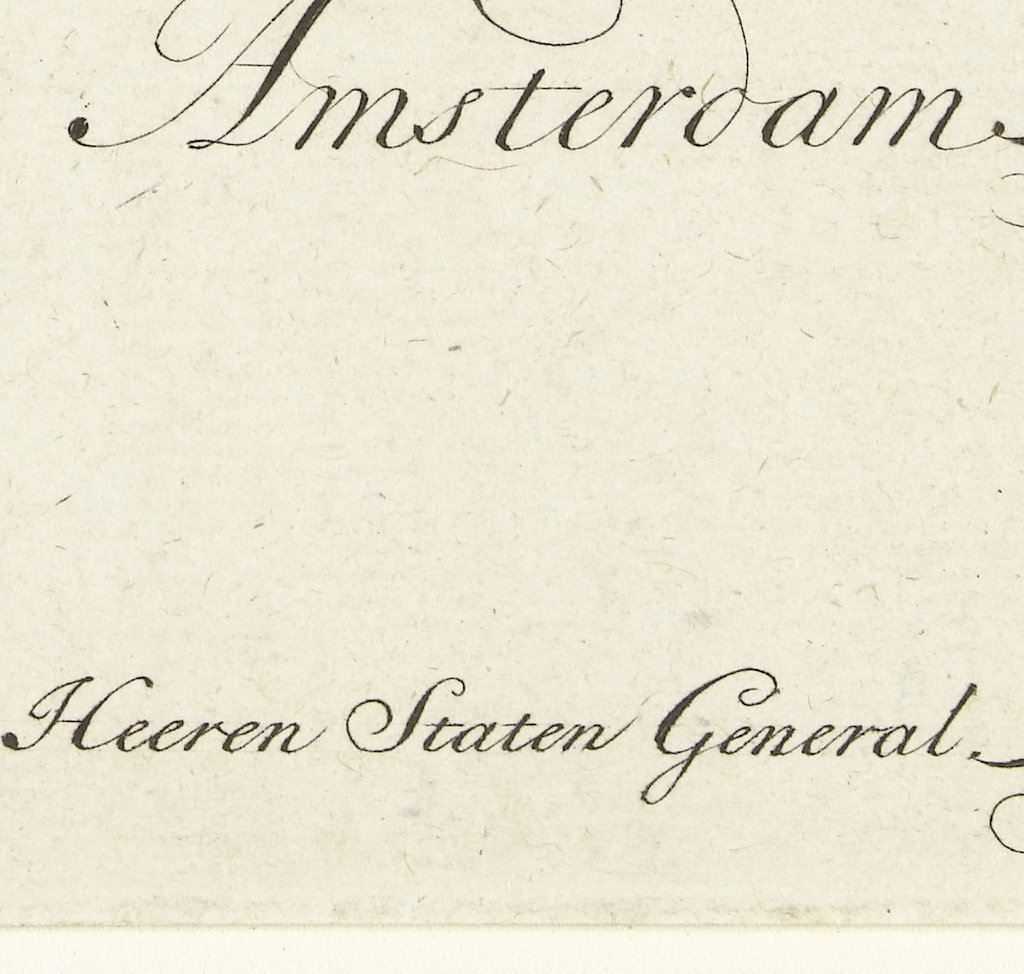 Amsterdam
Heeren Staten General.